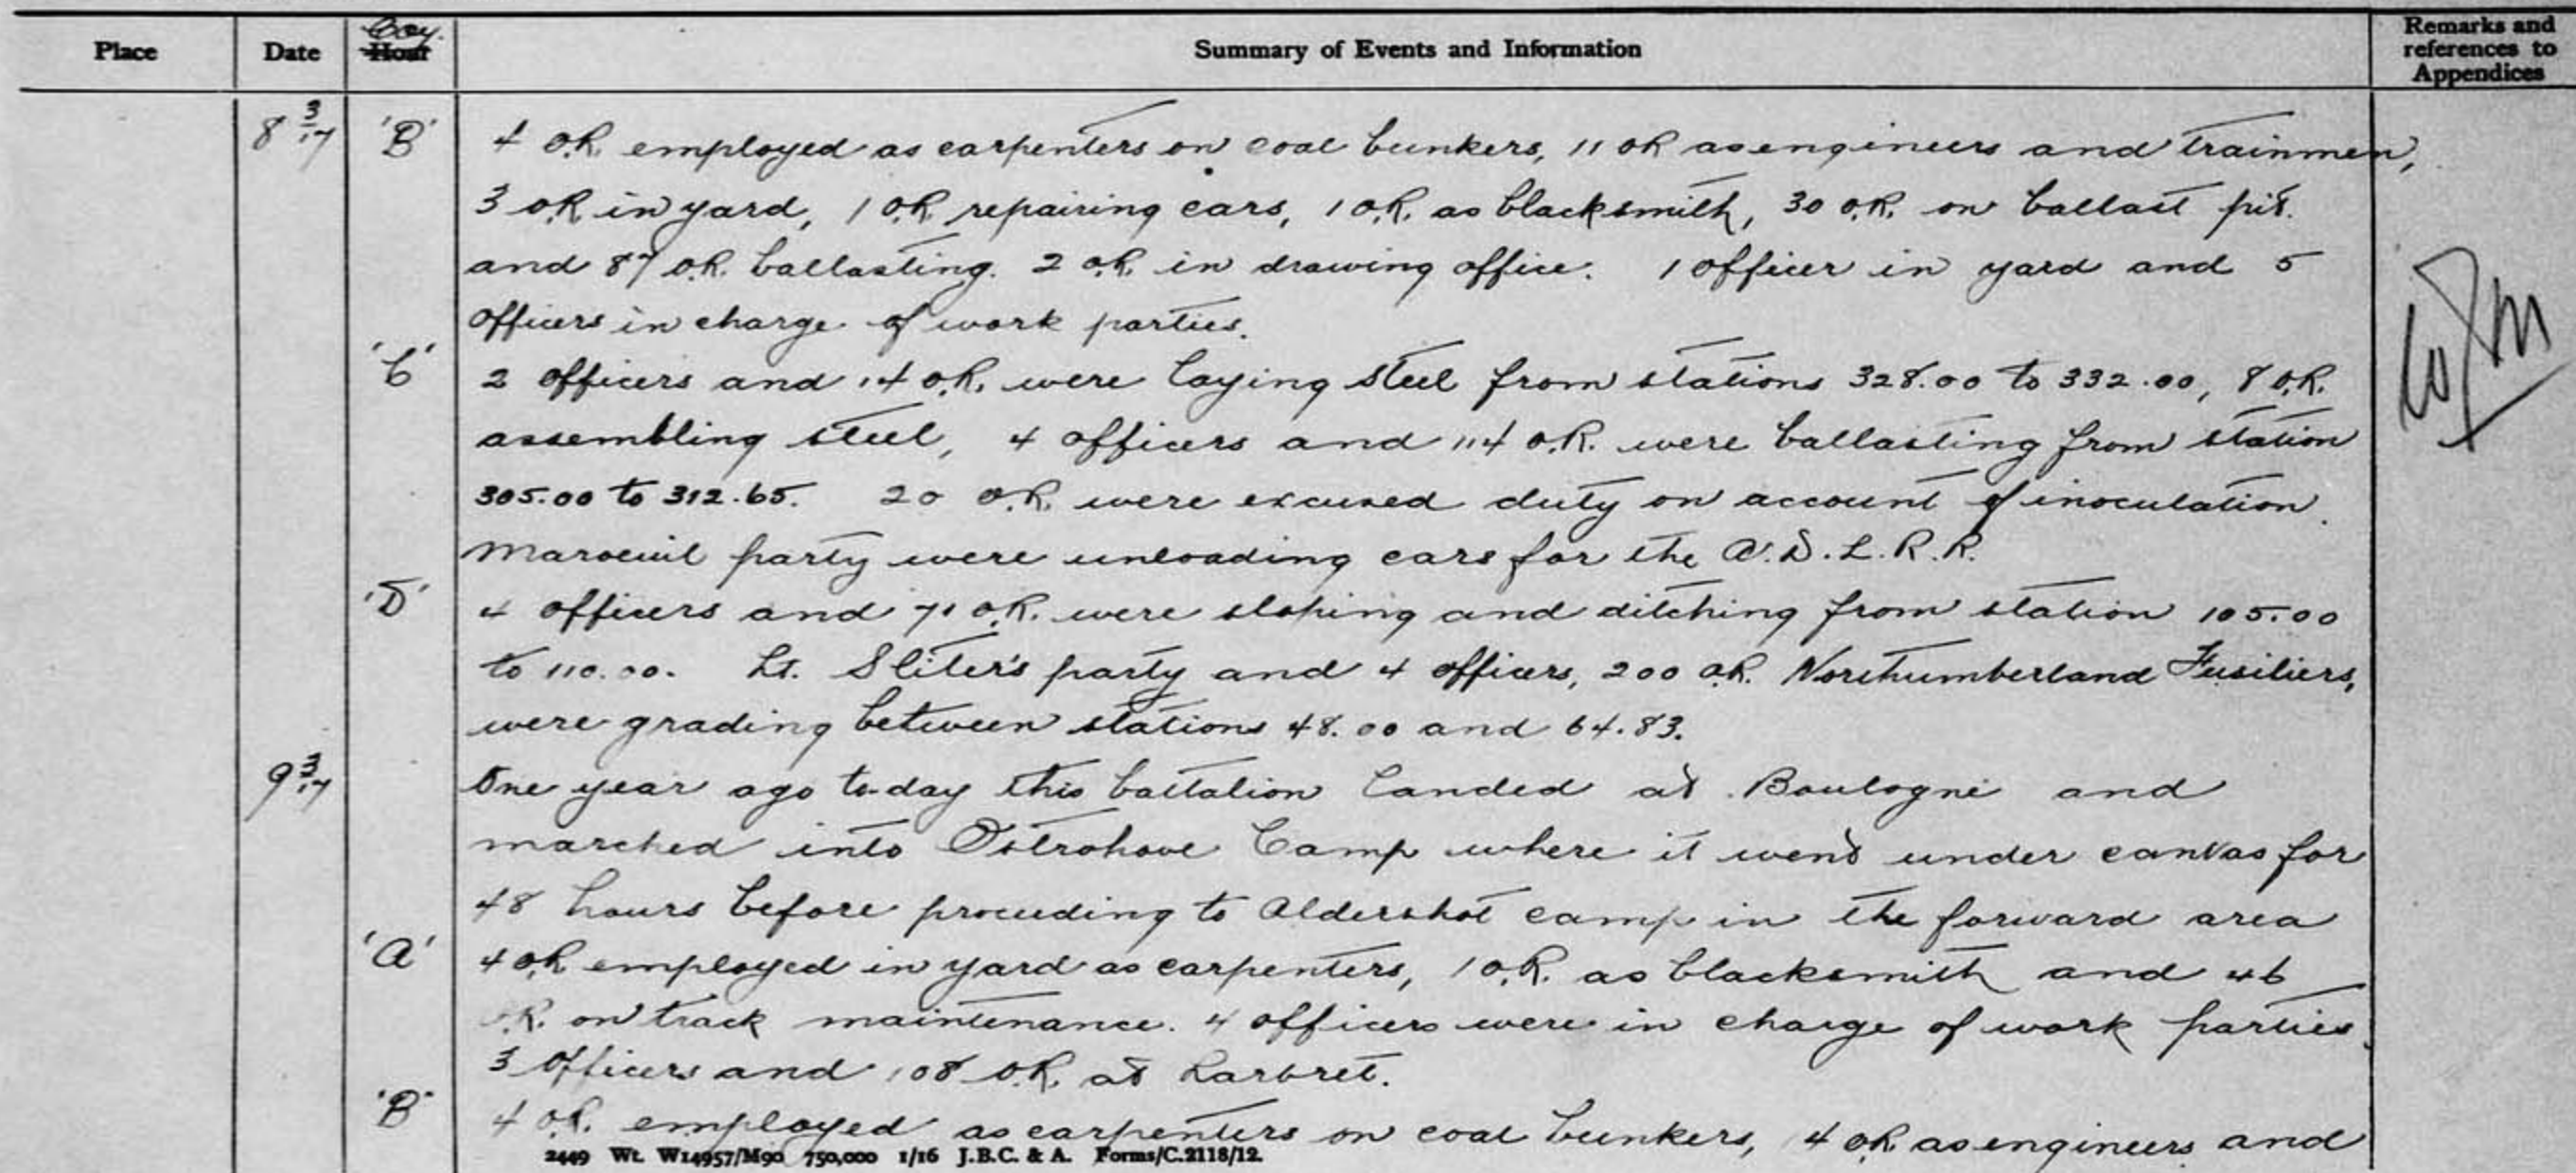 Place Date Coy. Hour Summary of Events and Information Remarks and references to Appendices
8 3/17 'B' 4 O.R. employed as carpenters on coal bunkers, 11 OR as engineers and trainmen,
3 O.R. in yard, 1 O.R. repairing cars, 1 O.R. as blacksmith, 30 O.R. on ballast pit.
and 87 O.R. ballasting. 2 O.R. in drawing office. 1 officer in yard and 5
officers in charge of work parties.
'C' 2 officers and 14 O.R. were laying steel from stations 328.00 to 332.00, 8 O.R.
assembling steel, 4 officers and 114 O.R. were ballasting from station
305.00 to 312.65. 20 O.R. were excused duty on account of inoculation.
Maroeuil party were unloading cars for the A.D.L.R.R.
'D' 4 officers and 71 O.R. were sloping and ditching from station 105.00
to 110.00. Lt. Sliter's party and 4 officers, 200 O.R. Northumberland Fusiliers,
were grading between stations 48.00 and 64.83.
9 3/17 One year ago to-day this battalion landed at Boulogne and
marched into Ostrohove Camp where it went under canvas for
48 hours before proceeding to Aldershot camp in the forward area
'A' 4 O.R. employed in yard as carpenters, 1 O.R. as blacksmith and 46
O.R. on track maintenance. 4 officers were in charge of work parties.
3 officers and 108 O.R. at Larbret.
'B' 4 O.R. employed as carpenters on coal bunkers, 4 O.R. as engineers and
2449 Wt. W14957/M90 750,000 1/16 J.B.C. & A. Forms/C.2118/12.